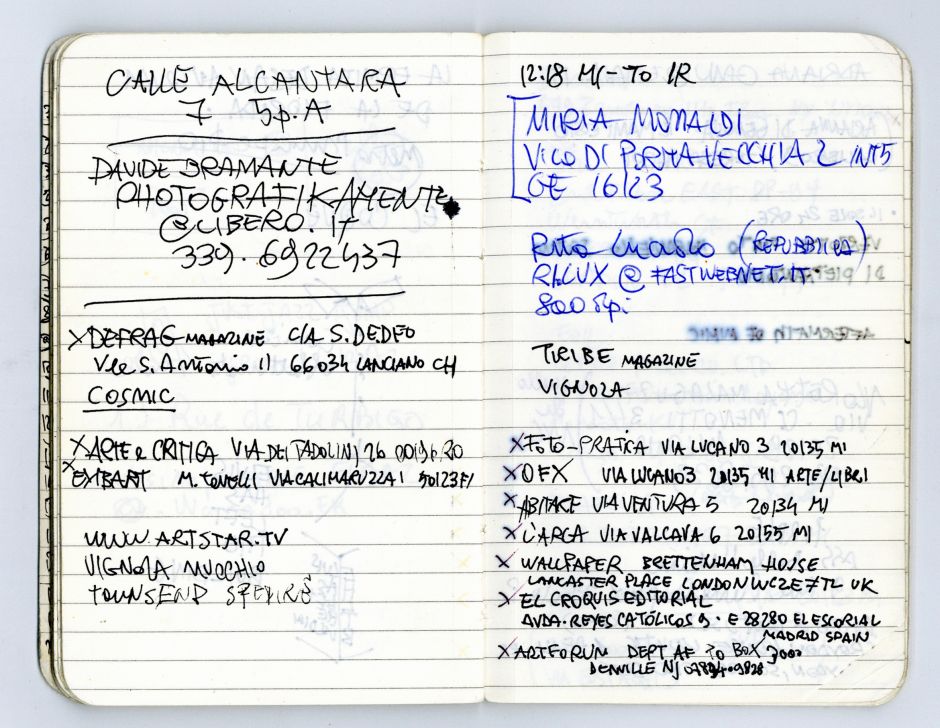 CALLE ALCANTARA
7 5p.A
DAVIDE BRAMANTE
PHOTOGRAFIKAMENTE
@LIBERO.IT
339.6922437
X DEFRAG MAGAZINE C/A S.DEDEO
Vle S. Antonio 11 66034 LANCIANO CH
COSMIC
X ARTE e CRITICA VIA DEI TADOLINI 26 00196 RO
X EXIBART M. TONELLI VIA CALIMARUZZA 1 50123 FI
WWW.ARTSTAR.TV
VIGNOLA MUCCHIO
TOWNSEND
12:18 MI-TO IR
MIRIA MONALDI
VICO DI PORTA VECCHIA 2 INT5
GE 16123
Rita (REPUBBLICA)
RI.LUX @ FASTWEBNET.IT
800 dpi
TRIBE MAGAZINE
VIGNOLA
X FOTO-PRATICA VIA LUCANO 3 20135 MI
X OFX VIA LUCANO 3 20135 MI ARTE/LIBRI
X ABITARE VIA VENTURA 5 20134 MI
X L'ARCA VIA VALCAVA 6 20155 MI
X WALLPAPER BRETTENHAM HOUSE
LANCASTER PLACE LONDON WC2E7TL UK
X EL CROQUIS EDITORIAL
AVDA. REYES CATÓLICOS 9. E 28280 EL ESCORIAL
MADRID SPAIN
X ARTFORUM DEPT AF PO BOX 3000
DENVILLE NJ 07834-9828